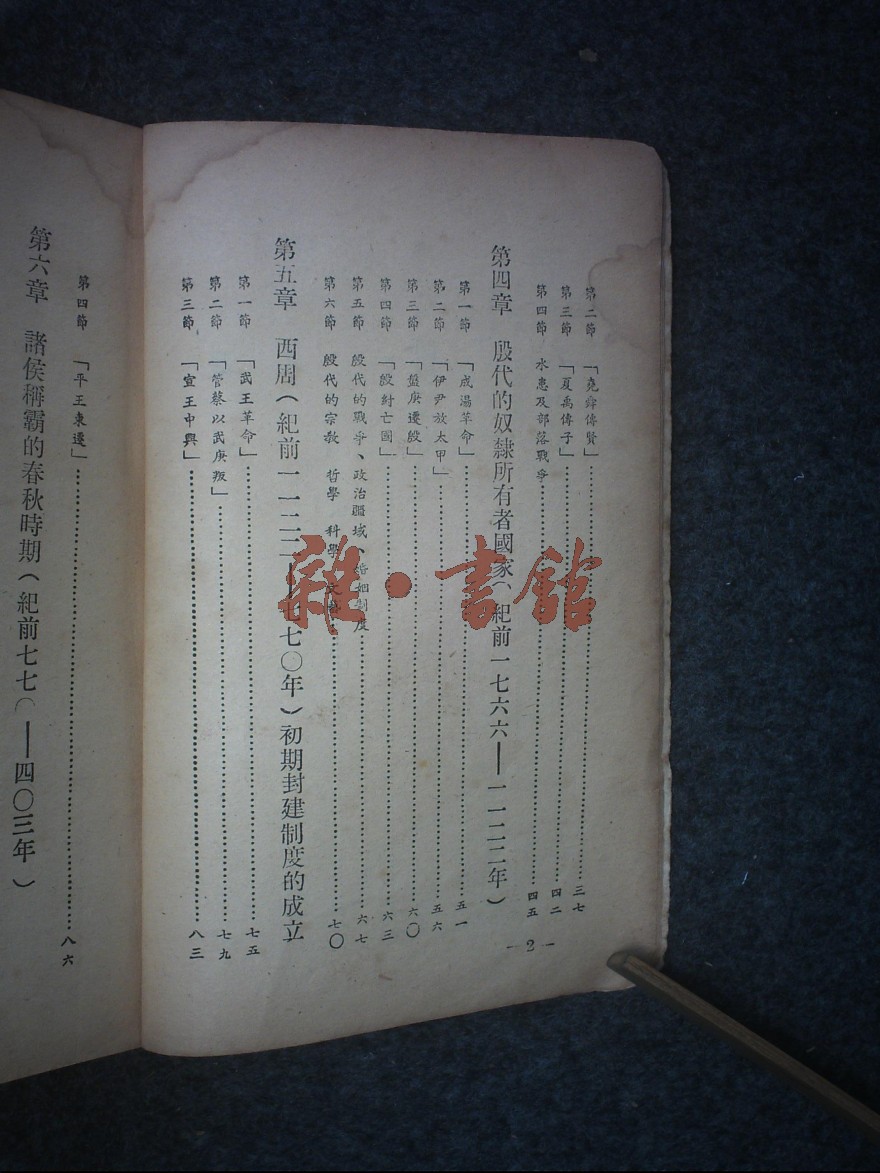 第二節 「堯舜傳賢」……三七
第三節 「夏禹傳子」……四二
第四節 水患及部落戰爭……四五
第四章 殷代的奴隸所有者國家(紀前一七六六——一一二二年)
第一節 「成湯革命」……五一
第二節 「伊尹放太甲」……五六
第三節 「盤庚遷殷」……六〇
第四節 「殷紂亡國」……六三
第五節 殷代的戰爭、政治疆域、婚姻制度……六七
第六節 殷代的宗教 哲學 科學……七〇
第五章 西周(紀前一一二二——七七〇年)初期封建制度的成立
第一節 「武王革命」……七五
第二節 「管蔡以武庚叛」……七九
第三節 「宣王中興」……八三
— 2 —
第四節 「平王東遷」……八六
第六章 諸侯稱霸的春秋時期(紀前七七〇——四〇三年)
雜·書館